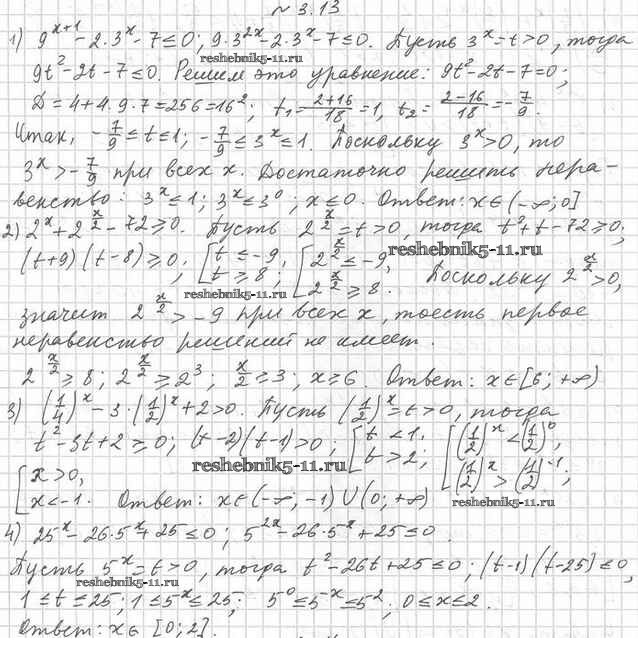 № 3.13
1) 9^{x+1} - 2·3^x - 7 ≤ 0; 9·3^{2x} - 2·3^x - 7 ≤ 0. Пусть 3^x = t > 0, тогда
reshebnik5-11.ru
9t² - 2t - 7 ≤ 0. Решим это уравнение: 9t² - 2t - 7 = 0;
D = 4 + 4·9·7 = 256 = 16²; t₁ = (2+16)/18 = 1, t₂ = (2-16)/18 = -7/9.
Итак, -7/9 ≤ t ≤ 1; -7/9 ≤ 3^x ≤ 1. Поскольку 3^x > 0, то
3^x > -7/9 при всех x. Достаточно решить нера-
венство: 3^x ≤ 1; 3^x ≤ 3^0; x ≤ 0. Ответ: x ∈ (-∞; 0]
2) 2^x + 2^{x/2} - 72 ≥ 0. Пусть 2^{x/2} = t > 0, тогда t² + t - 72 ≥ 0;
reshebnik5-11.ru
(t+9)(t-8) ≥ 0; [t ≤ -9, t ≥ 8; [2^{x/2} ≤ -9, 2^{x/2} ≥ 8. Поскольку 2^{x/2} > 0,
reshebnik5-11.ru
значит 2^{x/2} > -9 при всех x, тоесть первое
неравенство решений не имеет.
2^{x/2} ≥ 8; 2^{x/2} ≥ 2³; x/2 ≥ 3; x ≥ 6. Ответ: x ∈ [6; +∞)
3) (1/4)^x - 3·(1/2)^x + 2 > 0. Пусть (1/2)^x = t > 0, тогда
t² - 3t + 2 ≥ 0; (t-2)(t-1) > 0; [t < 1, t > 2; [(1/2)^x < (1/2)^0, (1/2)^x > (1/2)^{-1};
reshebnik5-11.ru
[x > 0, x < -1. Ответ: x ∈ (-∞; -1) ∪ (0; +∞)
reshebnik5-11.ru
4) 25^x - 26·5^x + 25 ≤ 0; 5^{2x} - 26·5^{-x} + 25 ≤ 0.
Пусть 5^x = t > 0, тогда t² - 26t + 25 ≤ 0; (t-1)(t-25) ≤ 0,
reshebnik5-11.ru
1 ≤ t ≤ 25; 1 ≤ 5^x ≤ 25; 5^0 ≤ 5^{-x} ≤ 5²; 0 ≤ x ≤ 2.
Ответ: x ∈ [0; 2].